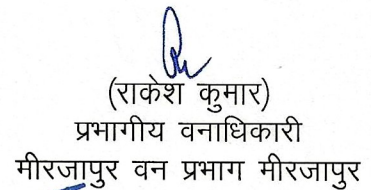 (राकेश कुमार)
प्रभागीय वनाधिकारी
मीरजापुर वन प्रभाग मीरजापुर